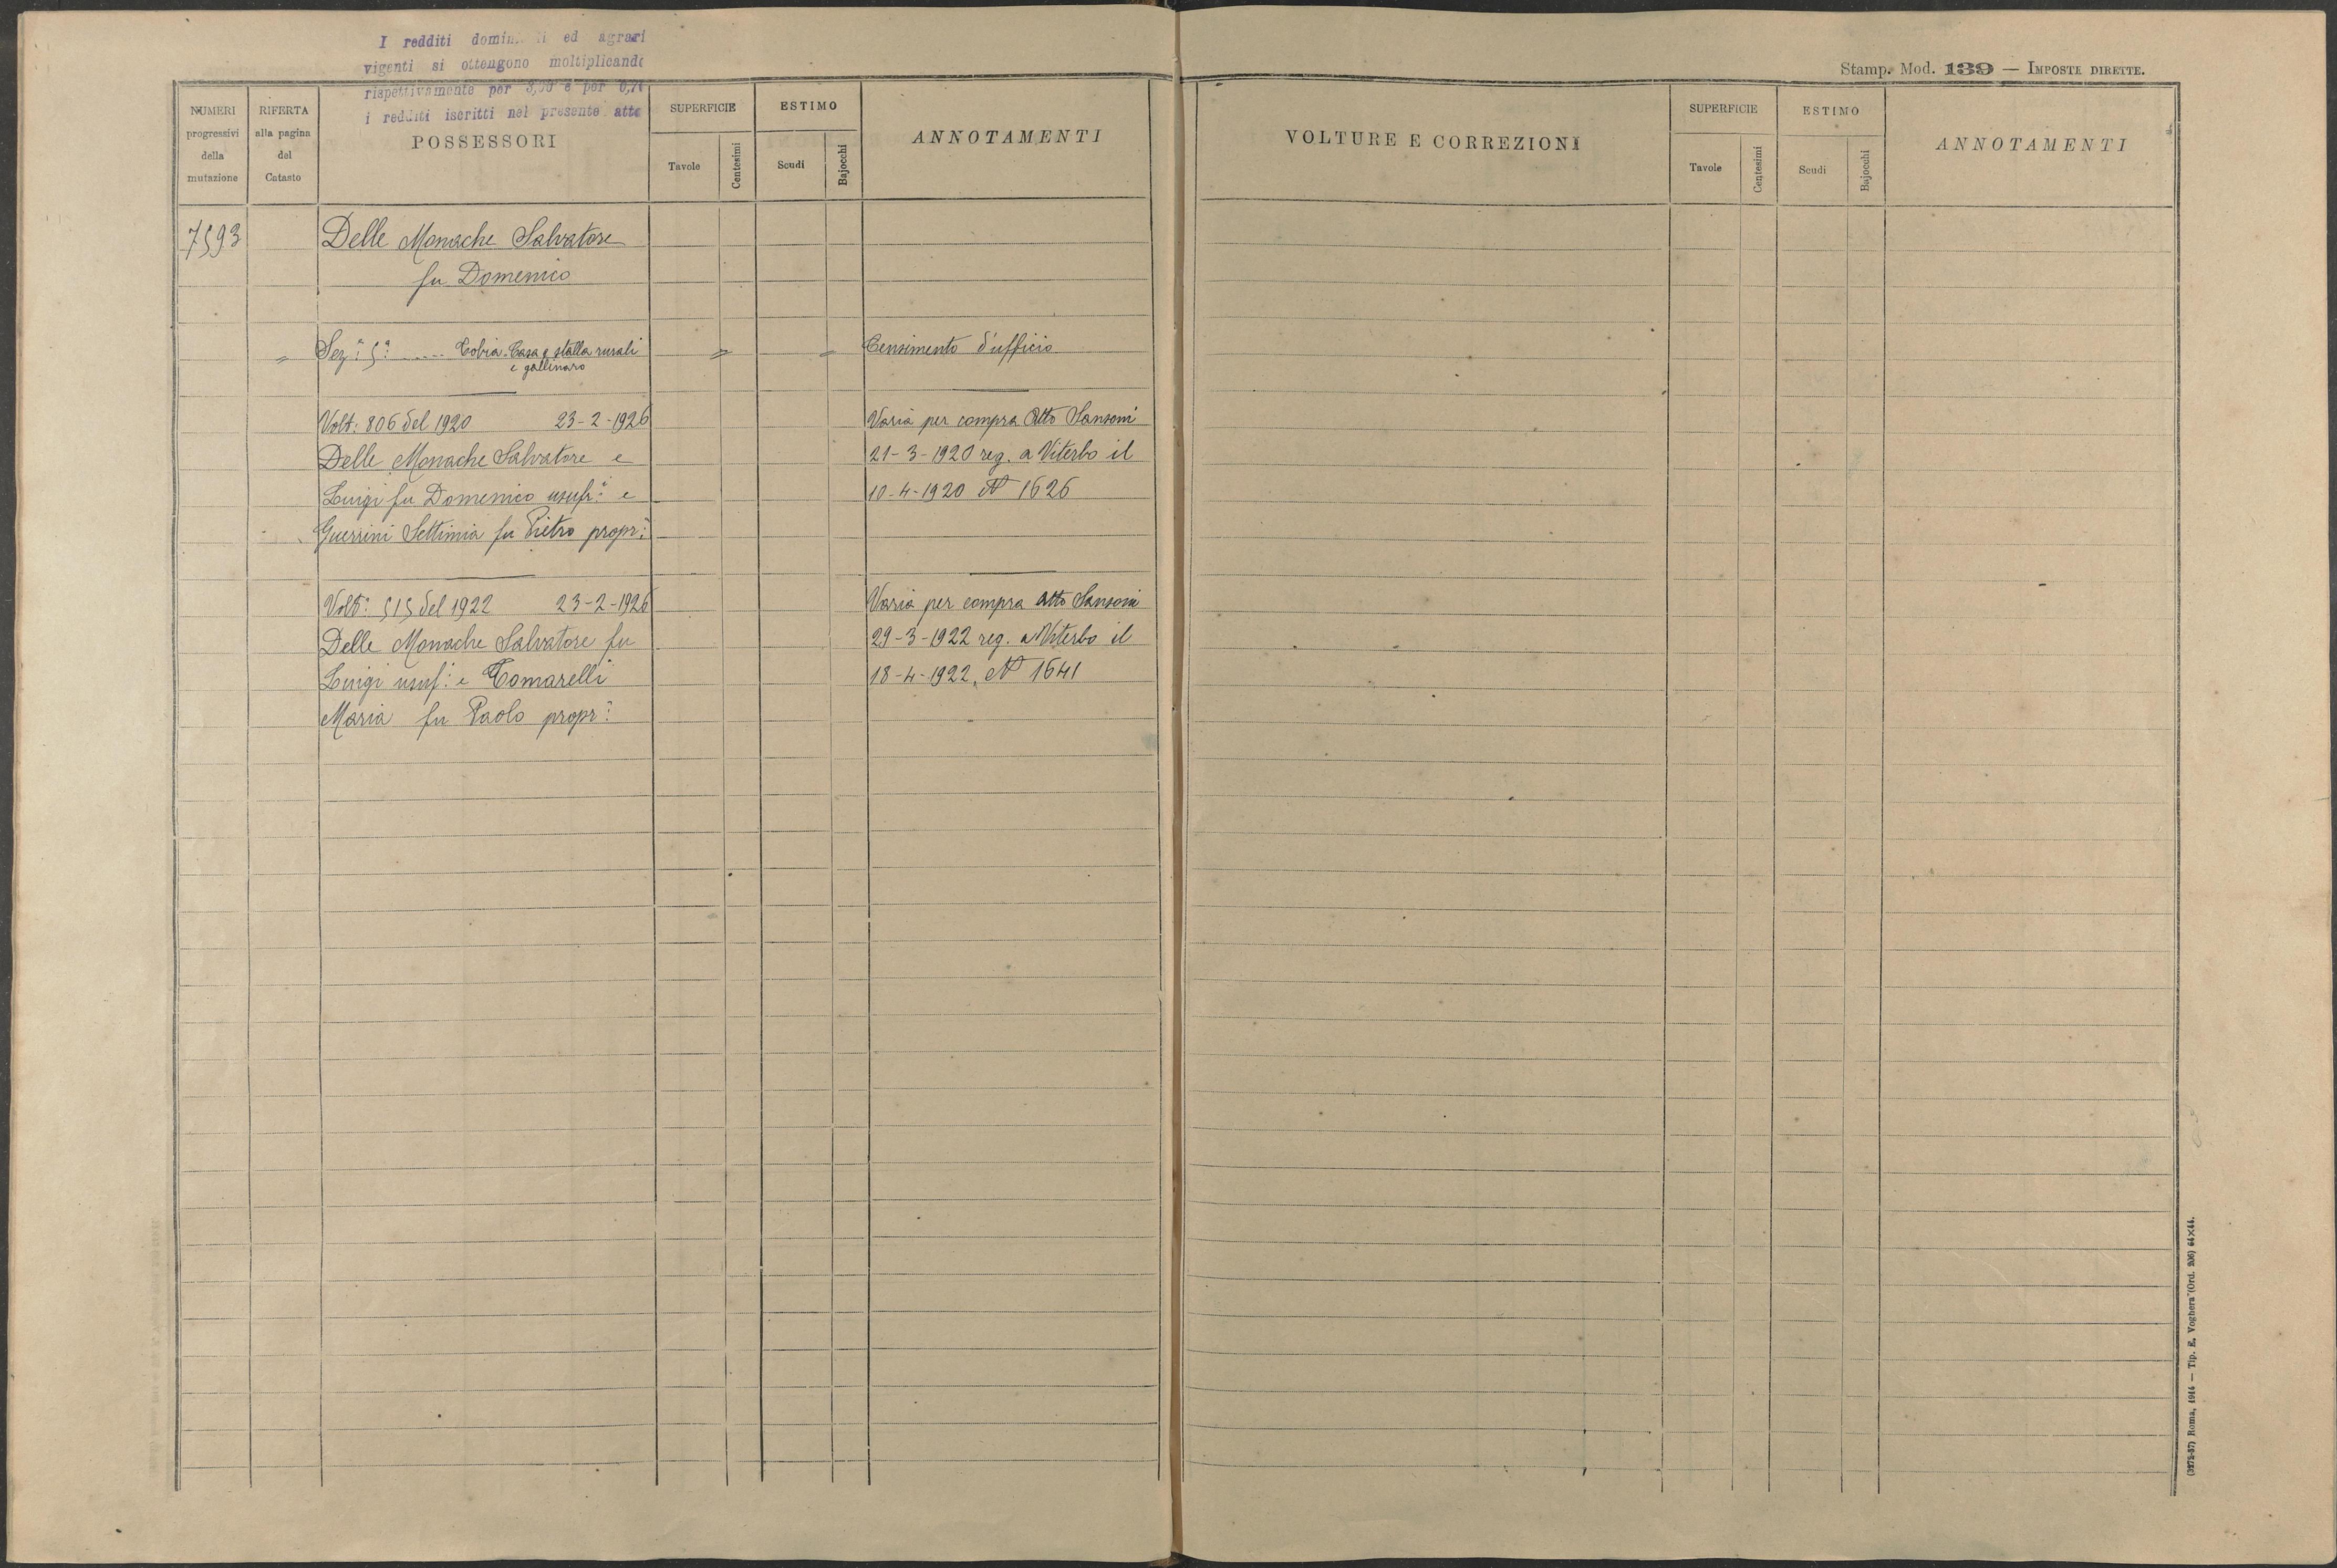 I redditi ed agrari
vigenti si ottengono moltiplicando
rispettivamente per 3,00 e per 0,70
i redditi iscritti nel presente atto
Stamp. Mod. 139 — IMPOSTE DIRETTE.
NUMERI
progressivi
della
mutazione
RIFERTA
alla pagina
del
Catasto
POSSESSORI
SUPERFICIE
Tavole
Centesimi
ESTIMO
Scudi
Bajocchi
ANNOTAMENTI
VOLTURE E CORREZIONI
SUPERFICIE
Tavole
Centesimi
ESTIMO
Scudi
Bajocchi
ANNOTAMENTI
7593 Delle Monache Salvatore
fu Domenico
" Sez:ª 5ª ..... Tobia. Casa e stalla rurali " " Censimento d'ufficio
e gallinaro
Volt: 806 del 1920 23-2-1926 Varia per compra Atto Sansoni
Delle Monache Salvatore e 21-3-1920 reg. a Viterbo il
Luigi fu Domenico usufr: e 10-4-1920 N 1626
Guerrini Settimia fu Pietro propr:
Volt: 515 del 1922 23-2-1926 Varia per compra Atto Sansoni
Delle Monache Salvatore fu 29-3-1922 reg. a Viterbo il
Luigi usuf: e Tomarelli 18-4-1922, N 1641
Maria fu Paolo propr:
(3272-57) Roma, 1914 — Tip. E. Voghera (Ord. 206) 64×44.